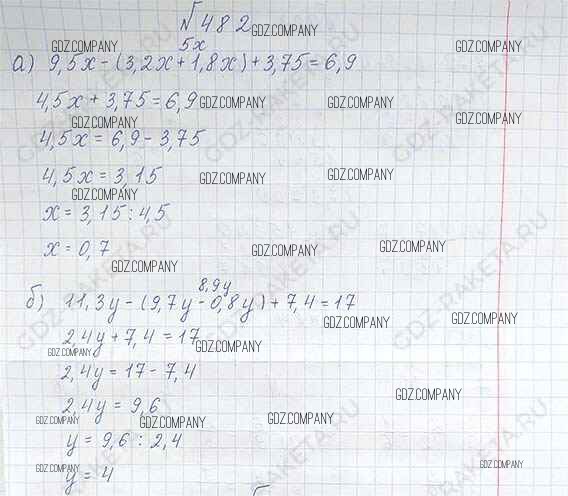 № 482
GDZ.COMPANY
5x
GDZ.COMPANY GDZ.COMPANY
а) 9,5x - (3,2x + 1,8x) + 3,75 = 6,9
4,5x + 3,75 = 6,9 GDZ.COMPANY GDZ.COMPANY
GDZ.COMPANY GDZ.COMPANY
4,5x = 6,9 - 3,75
4,5x = 3,15 GDZ.COMPANY GDZ.COMPANY
GDZ.COMPANY
x = 3,15 : 4,5
x = 0,7 GDZ.COMPANY GDZ.COMPANY
GDZ.COMPANY
8,9y
б) 11,3y - (9,7y - 0,8y) + 7,4 = 17
GDZ.COMPANY GDZ.COMPANY
2,4y + 7,4 = 17
GDZ.COMPANY GDZ.COMPANY
2,4y = 17 - 7,4
GDZ.COMPANY
2,4y = 9,6
GDZ.COMPANY GDZ.COMPANY GDZ.COMPANY
y = 9,6 : 2,4
GDZ.COMPANY GDZ.COMPANY
y = 4
GDZ-RAKETA.RU
GDZ-RAKETA.RU
GDZ-RAKETA.RU
GDZ-RAKETA.RU
GDZ-RAKETA.RU